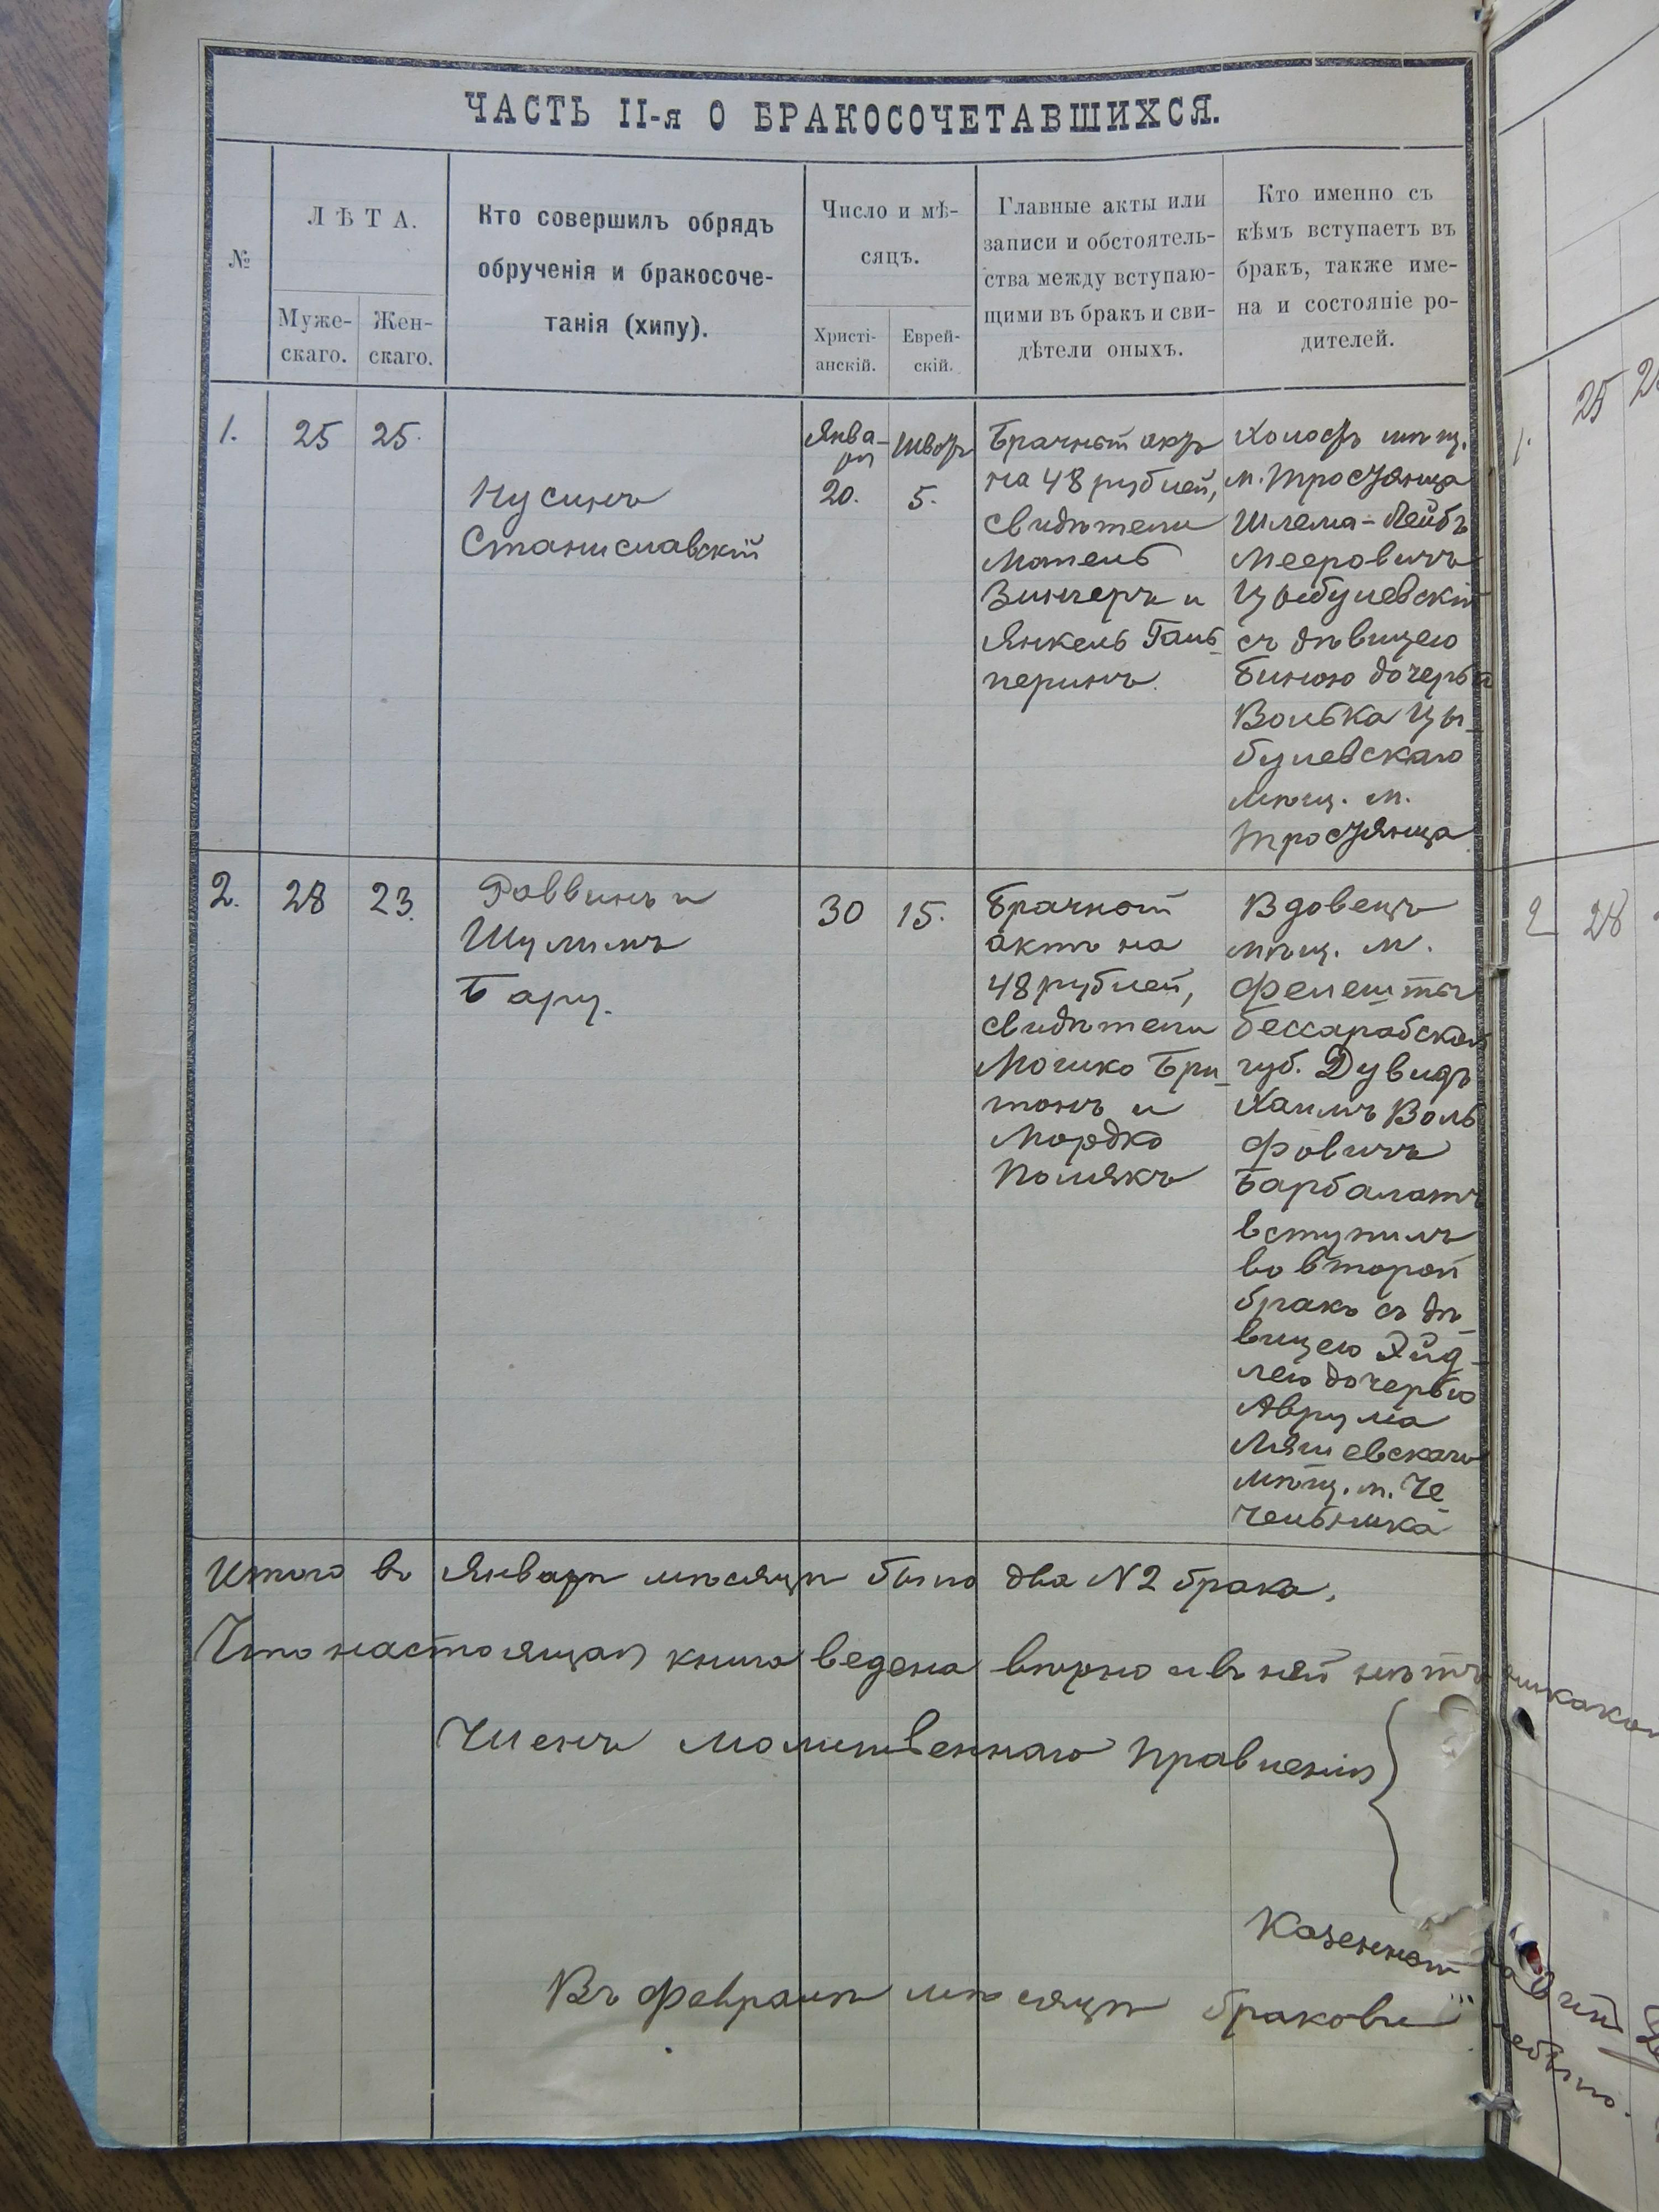 ЧАСТЬ II-я О БРАКОСОЧЕТАВШИХСЯ.
№
ЛѢТА.
Муже-
скаго.
Жен-
скаго.
Кто совершилъ обрядъ
обрученія и бракосоче-
танія (хипу).
Число и мѣ-
сяцъ.
Христі-
анскій.
Еврей-
скій.
Главные акты или
записи и обстоятель-
ства между вступаю-
щими въ бракъ и сви-
дѣтели оныхъ.
Кто именно съ
кѣмъ вступаетъ въ
бракъ, также име-
на и состояніе ро-
дителей.
1.
25
25.
Нусинъ
Станиславскій
Янва-
ря
20.
Шватъ
5.
Брачный актъ
на 48 рублей,
свидѣтели
Мотель
Зингеръ и
Янкель Галь-
перинъ.
Холостъ мѣщ.
м. Тростянца
Шлема-Лейбъ
Мееровичъ
Цыбулевскій
съ дѣвицею
Биною дочерью
Волька Цы-
булевскаго
мѣщ. м.
Тростянца
2.
28
23.
Раввинъ
Шулимъ
Барц.
30
15.
Брачный
актъ на
48 рублей,
свидѣтели
Мошко Бри-
тонъ и
Мордко
Полякъ
Вдовецъ
мѣщ. м.
Фелешты
Бессарабской
губ. Дувидъ
Хаимъ Воль
фовичъ
Барбалатъ
вступилъ
во второй
бракъ съ дѣ-
вицею Эйд-
лею дочерью
Аврума
Ляшевскаго
мѣщ. м. Че-
чельника
1.
25
2
28
Итого въ Январѣ мѣсяцѣ было два N2 брака.
Что настоящая книга ведена вѣрно и въ ней нѣтъ никакой
Членъ молитвеннаго правленія
Казенный
Въ Февралѣ мѣсяцѣ браковъ небыло.